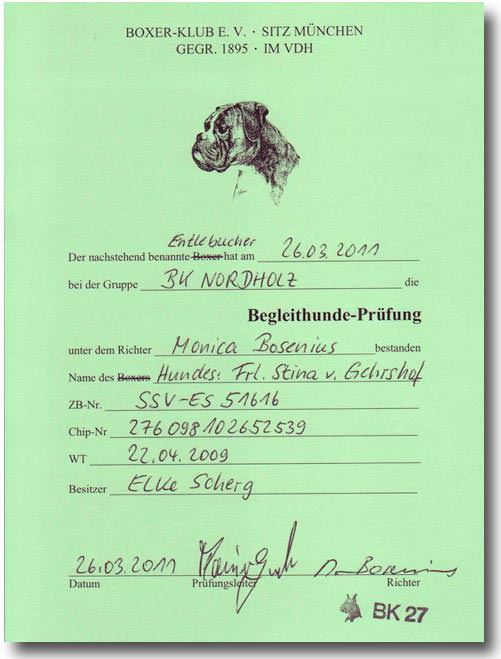 BOXER-KLUB E. V. · SITZ MÜNCHEN
GEGR. 1895 · IM VDH
Entlebucher
Der nachstehend benannte Boxer hat am 26.03.2011
bei der Gruppe BK NORDHOLZ die
Begleithunde-Prüfung
unter dem Richter Monica Bosenius bestanden
Name des Boxers Hundes: Frl. Stina v. Gehrshof
ZB-Nr. SSV-ES 51616
Chip-Nr 276098102652539
WT 22.04.2009
Besitzer Elke Scherg
26.03.2011
Datum Prüfungsleiter Richter
BK 27